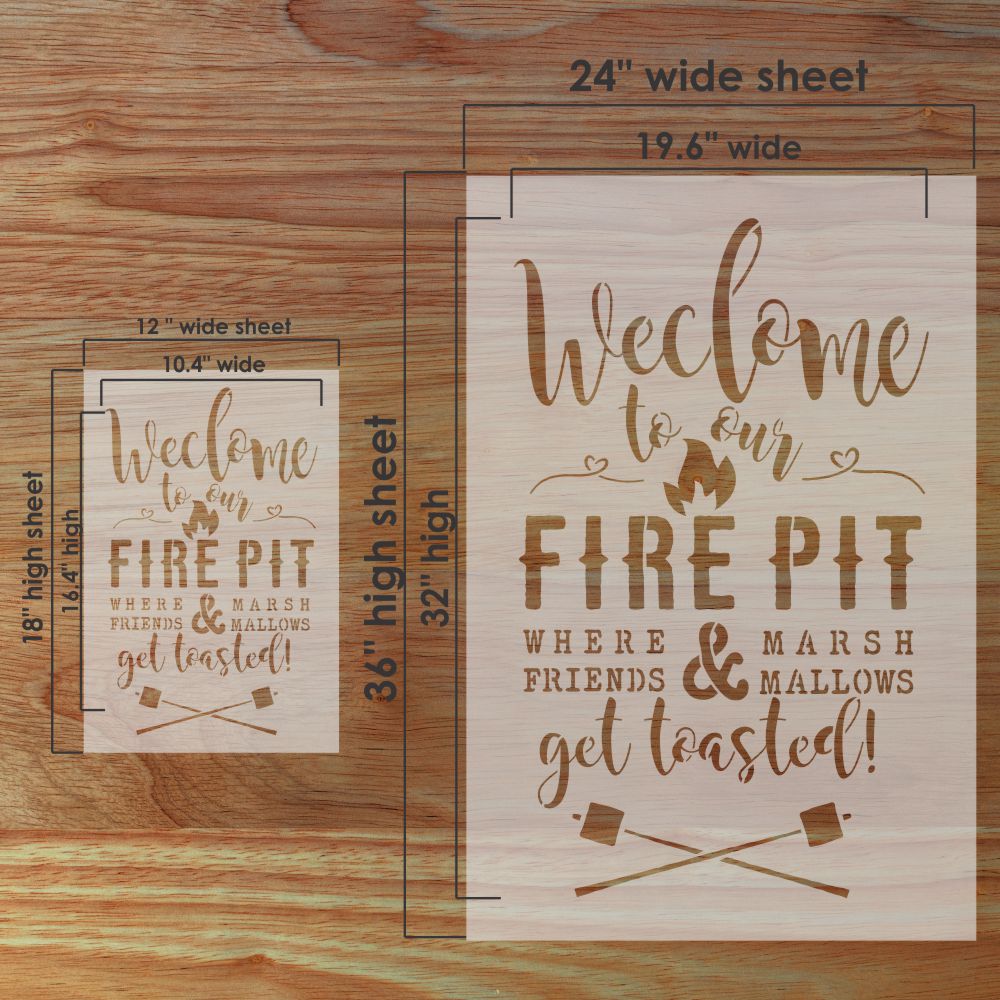 24" wide sheet
19.6" wide
36" high sheet
32" high
Weclome
to our
FIRE PIT
WHERE & MARSH
FRIENDS MALLOWS
get toasted!
12 " wide sheet
10.4" wide
18" high sheet
16.4" high
Weclome
to our
FIRE PIT
WHERE & MARSH
FRIENDS MALLOWS
get toasted!